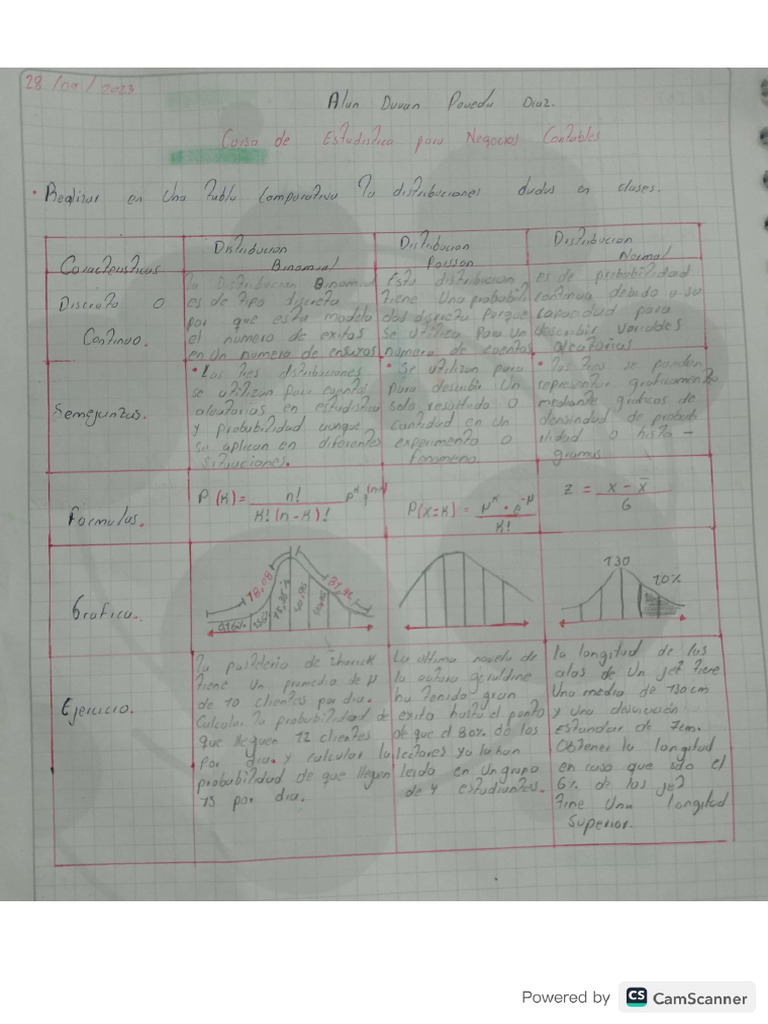 28/09/2023
Alan Duvan Poveda Diaz.
Curso de Estadistica para Negocios Contables
• Realizar en una tabla comparativa la distribuciones dadas en clases.
Caracteristicas
Distribucion
Binomial
Distribucion
Poisson
Distribucion
Normal
Discreta o
Continuo.
la Distribucion Binomial
es de tipo discreta
por que esta modela
el numero de exitos
en un numero de ensayos
Esta distribucion
tiene una probabili
dad discreta porque
se utiliza para un
numero de eventos
es de probabilidad
continua debido a su
capacidad para
describir variables
aleatorias
Semejanzas.
• Las tres distribuciones
se utilizan para
aleatorias en estadistica
y probabilidad aunque
se aplican en diferentes
situaciones.
• Se utilizan para
para describir un
solo resultado o
cantidad en un
experimento o
fenomeno.
• las tres se pueden
representar graficamente
mediante graficos de
densindad de probab
ilidad o histo-
gramas
Formulas.
P(K) = n!
K!(n-K)!
P(x=K) = μᴷ · e⁻μ
K!
z = x - x̄
6
Grafica.
18,08
31,92
130
10%
Ejercicio.
la pasteleria de
tiene un promedio de μ
de 10 clientes por dia.
Calcular la probabilidad de
que lleguen 12 clientes
por dia. y calcular la
probabilidad de que lleguen
15 por dia.
La ultima novela de
la autora geraldine
ha tenido gran
exito hasta el punto
de que el 80% de los
lectores ya la han
leido en un grupo
de 4 estudiantes.
la longitud de las
alas de un jet tiene
una media de 130cm
y una desviacion
estandar de 7cm.
Obtener la longitud
en caso que solo el
6% de las jet
tine una longitud
superior.
Powered by CS CamScanner